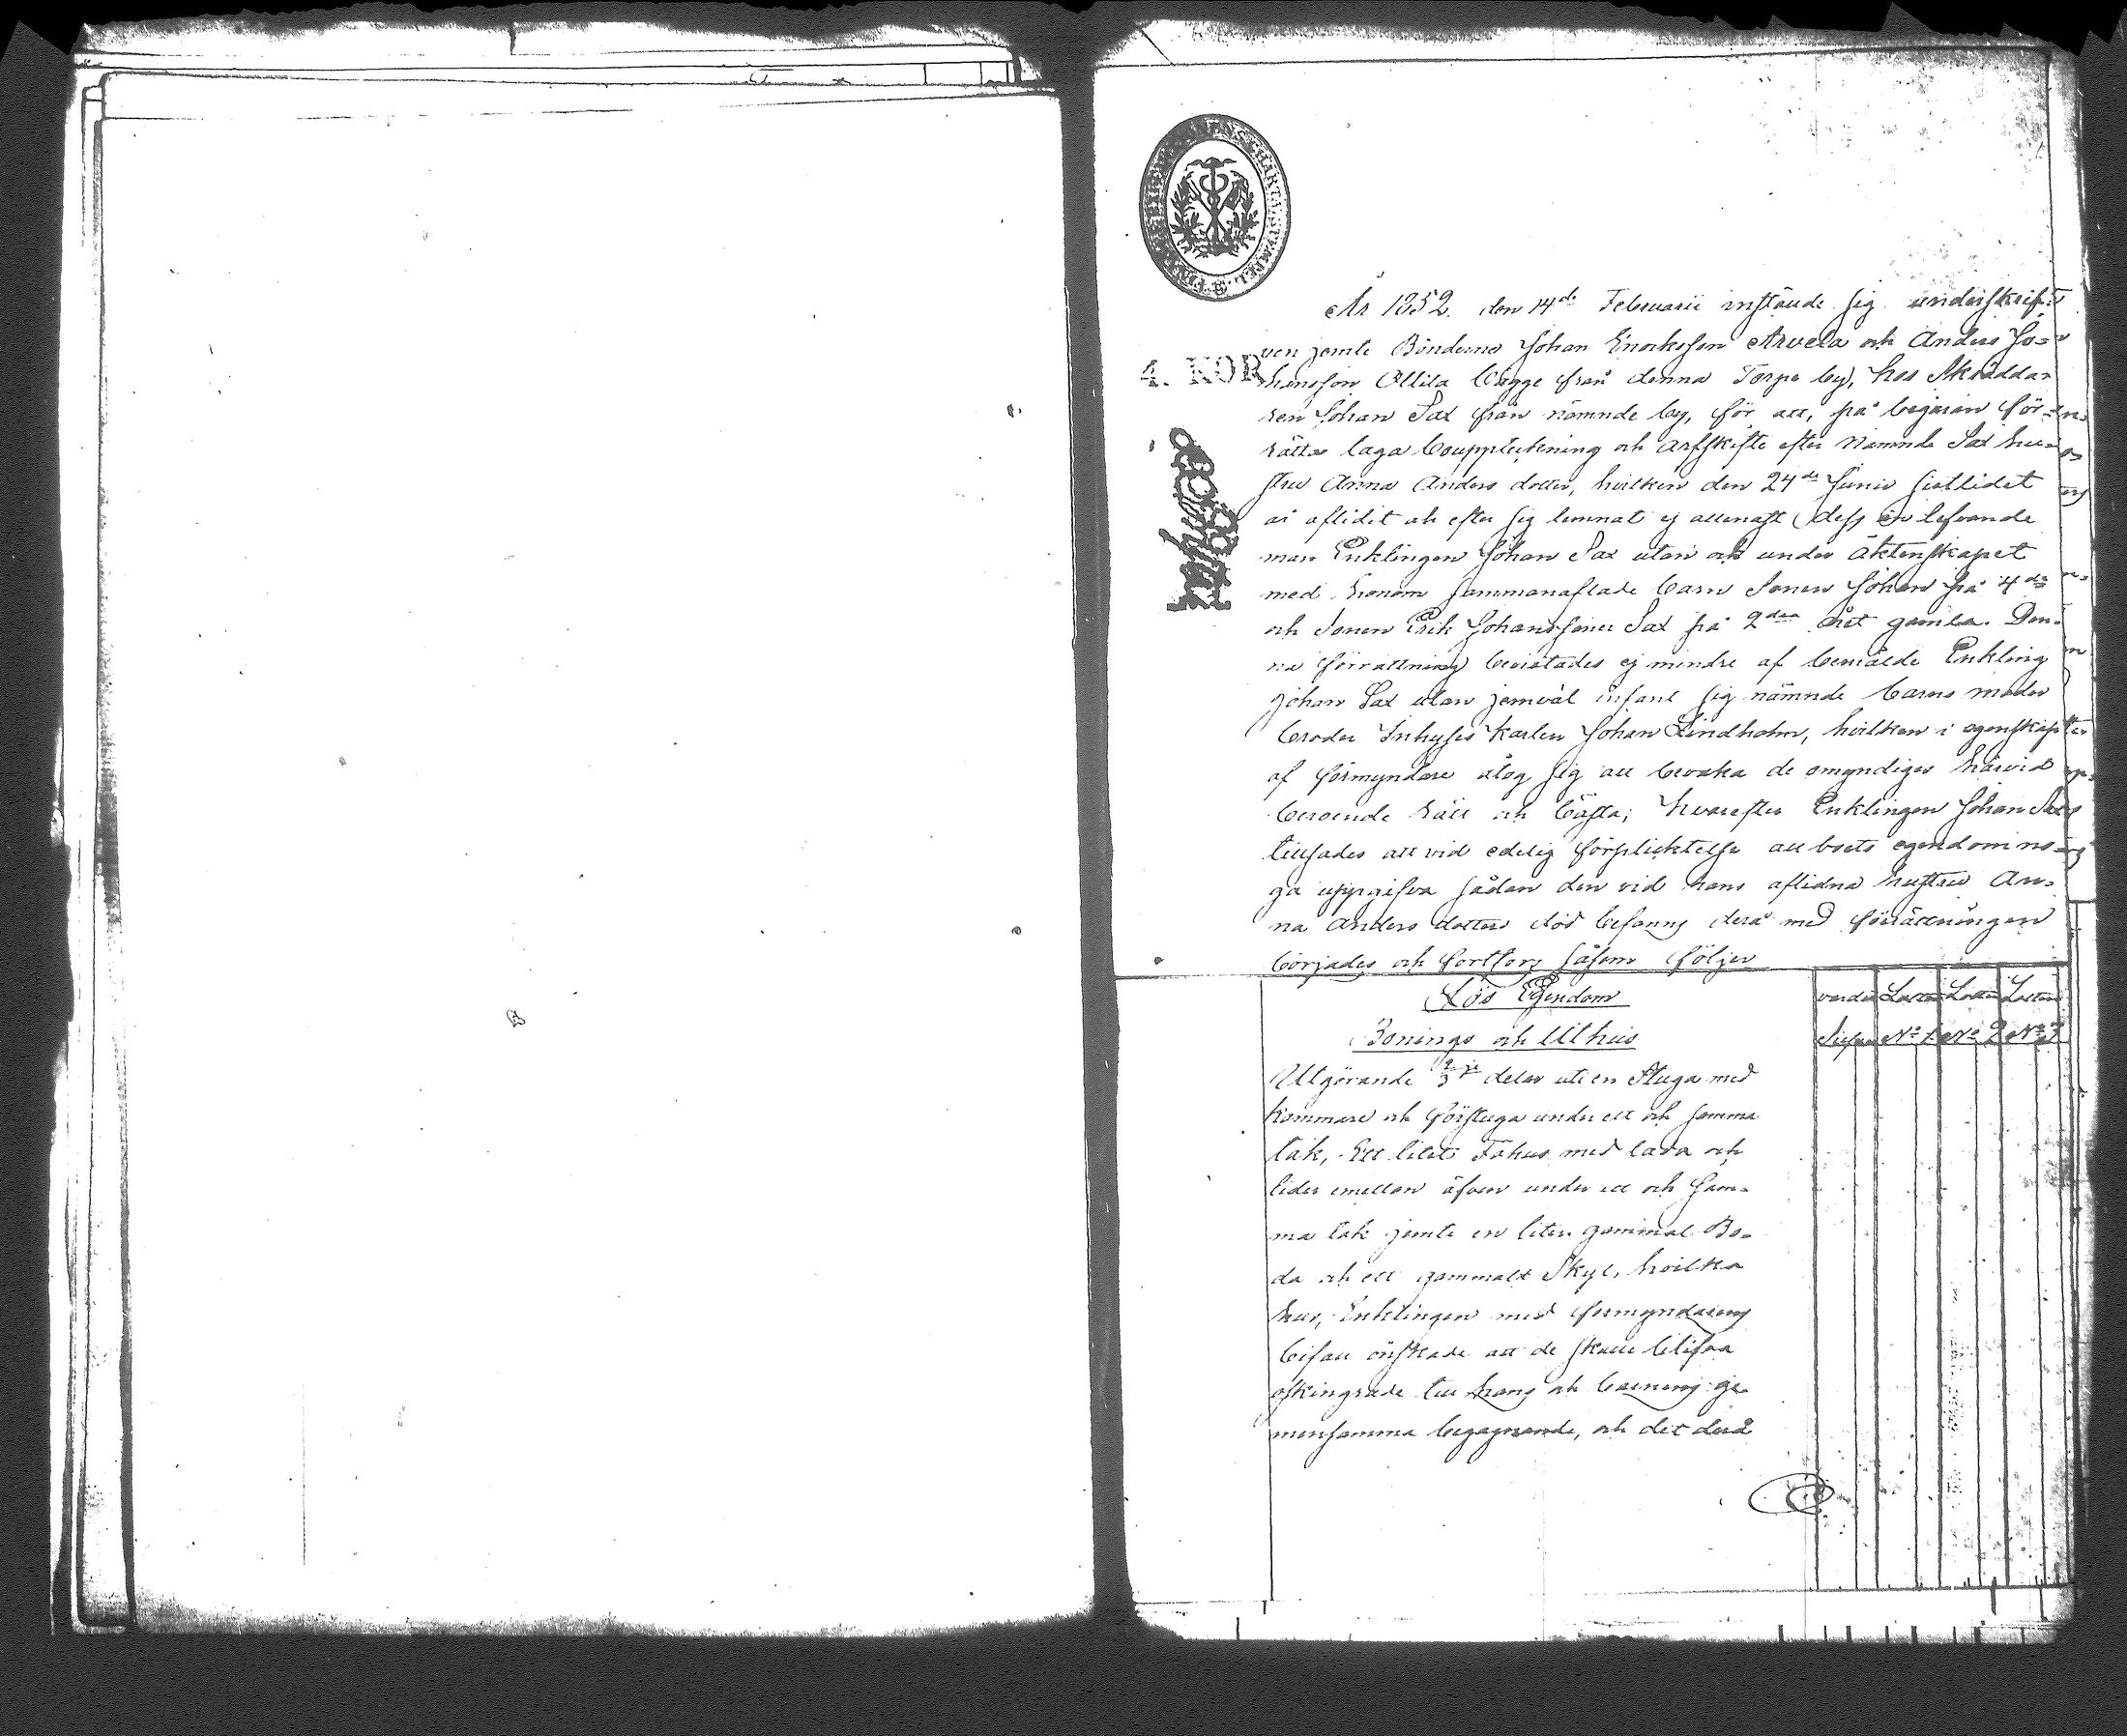 År 1852. den 14de Februarii instäude sig underskrif-
ven jemte Bönderne Johan Enoksson Arvela och Anders Jo-
hansson Ollila bägge från denna Torpo by, hos Skräddar
4. KOP
ren Johan Sax från nämnde by, för att, på begäran för-
rätta laga bouppteckning och arfskifte efter nämnde Sax hu-
stru Anna Anders dotter, hvilken den 24de Junii sistlidet
år aflidit och efter sig lemnat ej allenast dess än lefvande
man Enklingen Johan Sax utan och under äktenskapet
med honom sammanaflade barn Sonen Johan på 4de
och Sonen Erik Johans söner Sax på 2dra året gamla. Den-
na förrättning bevistades ej mindre af bemälde Enkling
Johan Sax utan jemväl infant sig nämnde barns moder
broder Inhyses karlen Johan Lindholm, hvilken i egenskap
af förmyndare åtog sig att bevaka de omyndiges härvid
beroende rätt och bästa; hvarefter Enklingen Johan Sax
tillsades att vid edelig förplicktelse all boets egendom no-
ga uppgifva sådan den vid hans aflidna hustrus An-
na Anders dotters död befanns derå med förrättningen
börjades och fortfors såsom följer
Lös Egendom
värde Lotten Lotten Lotten
Bonings och Uthus
Silfver No 1 No 2 No 3
Utgörande 2/3je delar uti en Stuga med
kammare och förstuga under ett och samma
tak, Ett litet Fähus med lada och
lider emellan äfven under ett och sam-
ma tak jemte en liten gammal Bo-
da och ett gammalt Skyl, hvilka
hus, Enklingen med förmyndarens
bifall önskade att de skulle blifva
oskingrade till hans och barnens ge-
mensamma begagnande, och det derå